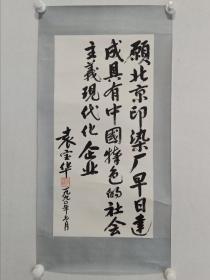 願北京印染厂早日建
成具有中國特色的社会
主義現代化企业
袁宝华
一九九〇年七月